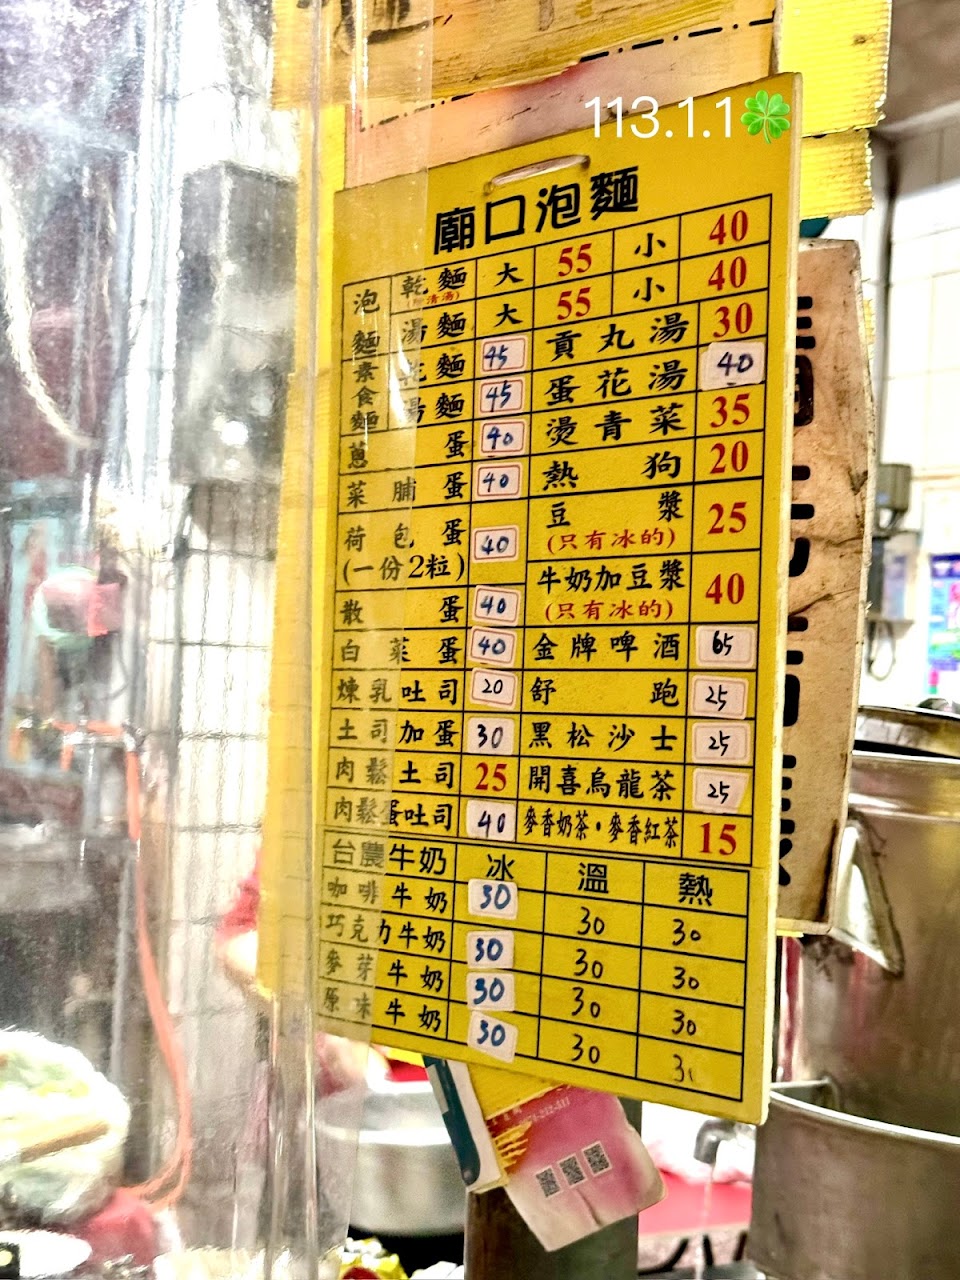 113.1.1🍀
廟口泡麵
泡麵 乾麵 大 55 小 40
(附清湯)
湯麵 大 55 小 40
素食麵 乾麵 45 貢丸湯 30
湯麵 45 蛋花湯 40
蔥蛋 40 燙青菜 35
菜脯蛋 40 熱狗 20
荷包蛋 40 豆漿 25
(一份2粒) (只有冰的)
散蛋 40 牛奶加豆漿 40
(只有冰的)
白菜蛋 40 金牌啤酒 65
煉乳吐司 20 舒跑 25
土司加蛋 30 黑松沙士 25
肉鬆土司 25 開喜烏龍茶 25
肉鬆蛋吐司 40 麥香奶茶·麥香紅茶 15
台農牛奶 冰 溫 熱
咖啡牛奶 30 30 30
巧克力牛奶 30 30 30
麥芽牛奶 30 30 30
原味牛奶 30 30